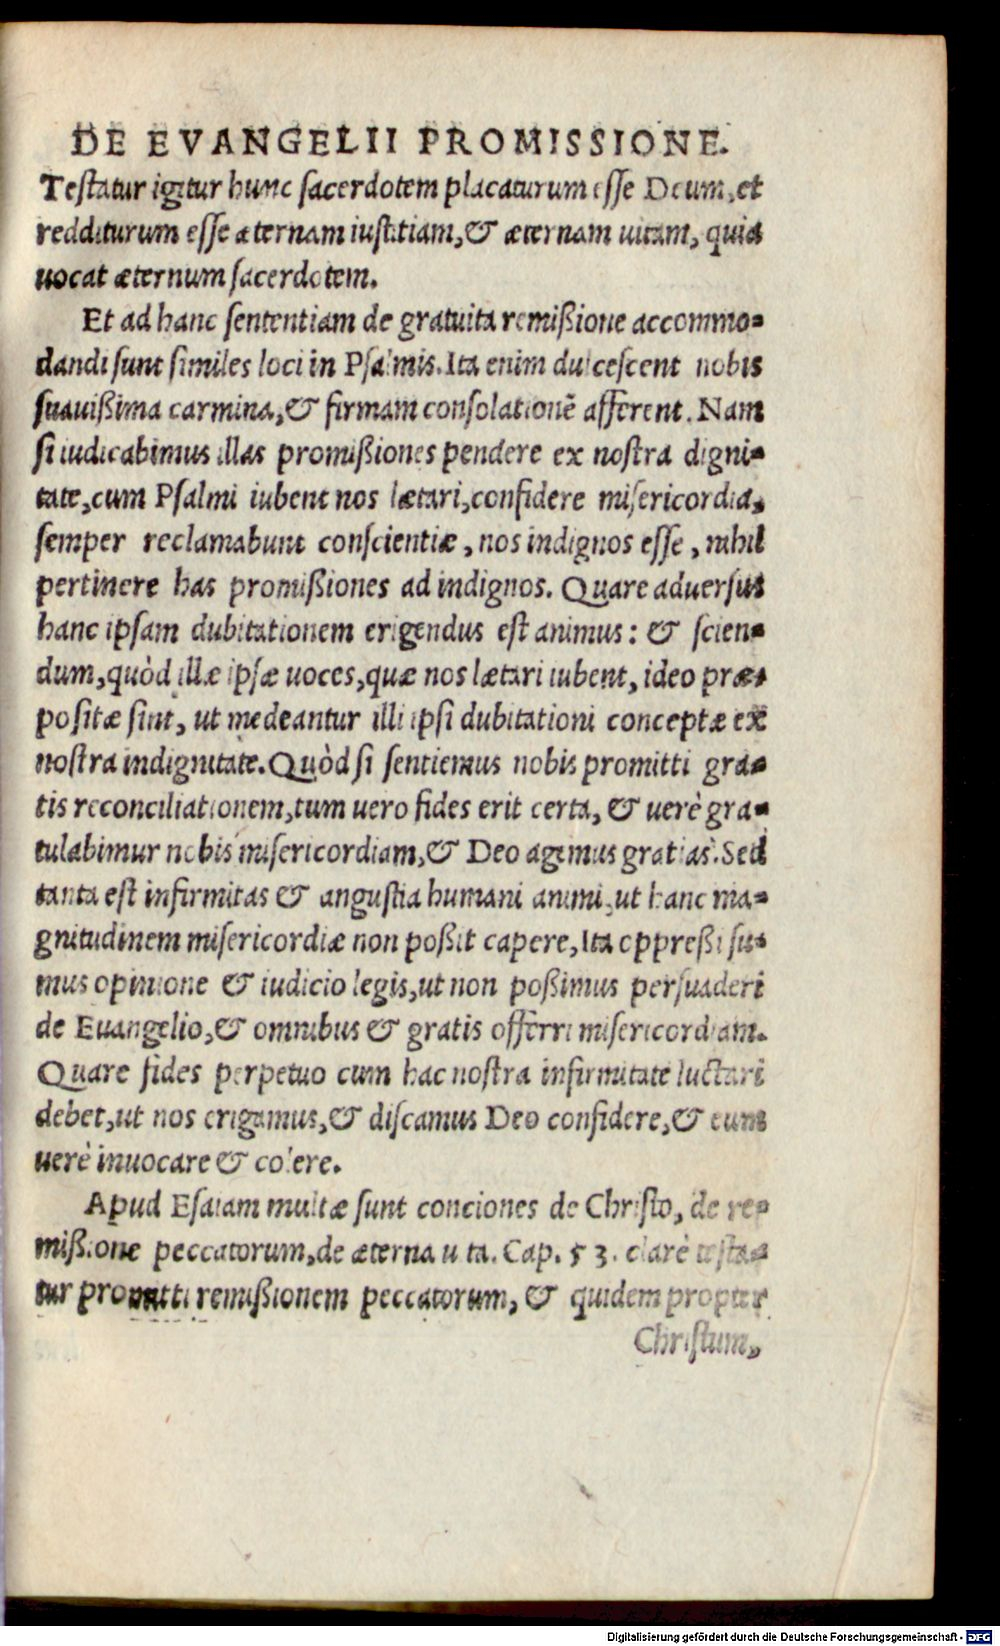 DE EVANGELII PROMISSIONE.
Testatur igitur hunc sacerdotem placaturum esse Deum, et
redditurum esse æternam iustitiam, & æternam uitam, quia
uocat æternum sacerdotem.
Et ad hanc sententiam de gratuita remißione accommo=
dandi sunt similes loci in Psalmis. Ita enim dulcescent nobis
suauißima carmina, & firmam consolationē afferent. Nam
si iudicabimus illas promißiones pendere ex nostra digni=
tate, cum Psalmi iubent nos lætari, confidere misericordia,
semper reclamabunt conscientiæ, nos indignos esse, nihil
pertinere has promißiones ad indignos. Quare aduersus
hanc ipsam dubitationem erigendus est animus: & scien=
dum, quòd illæ ipsæ uoces, quæ nos lætari iubent, ideo præ=
positæ sint, ut medeantur illi ipsi dubitationi conceptæ ex
nostra indignitate. Quòd si sentiemus nobis promitti gra=
tis reconciliationem, tum uero fides erit certa, & uerè gra=
tulabimur nobis misericordiam, & Deo agemus gratias. Sed
tanta est infirmitas & angustia humani animi, ut hanc ma=
gnitudinem misericordiæ non poßit capere, Ita oppreßi su=
mus opinione & iudicio legis, ut non poßimus persuaderi
de Euangelio, & omnibus & gratis offerri misericordiam.
Quare fides perpetuo cum hac nostra infirmitate luctari
debet, ut nos erigamus, & discamus Deo confidere, & eum
uerè inuocare & colere.
Apud Esaiam multæ sunt conciones de Christo, de re=
mißione peccatorum, de æterna uita. Cap. 53. clarè testa=
tur promitti remißionem peccatorum, & quidem propter
Christum,
Digitalisierung gefördert durch die Deutsche Forschungsgemeinschaft - DFG